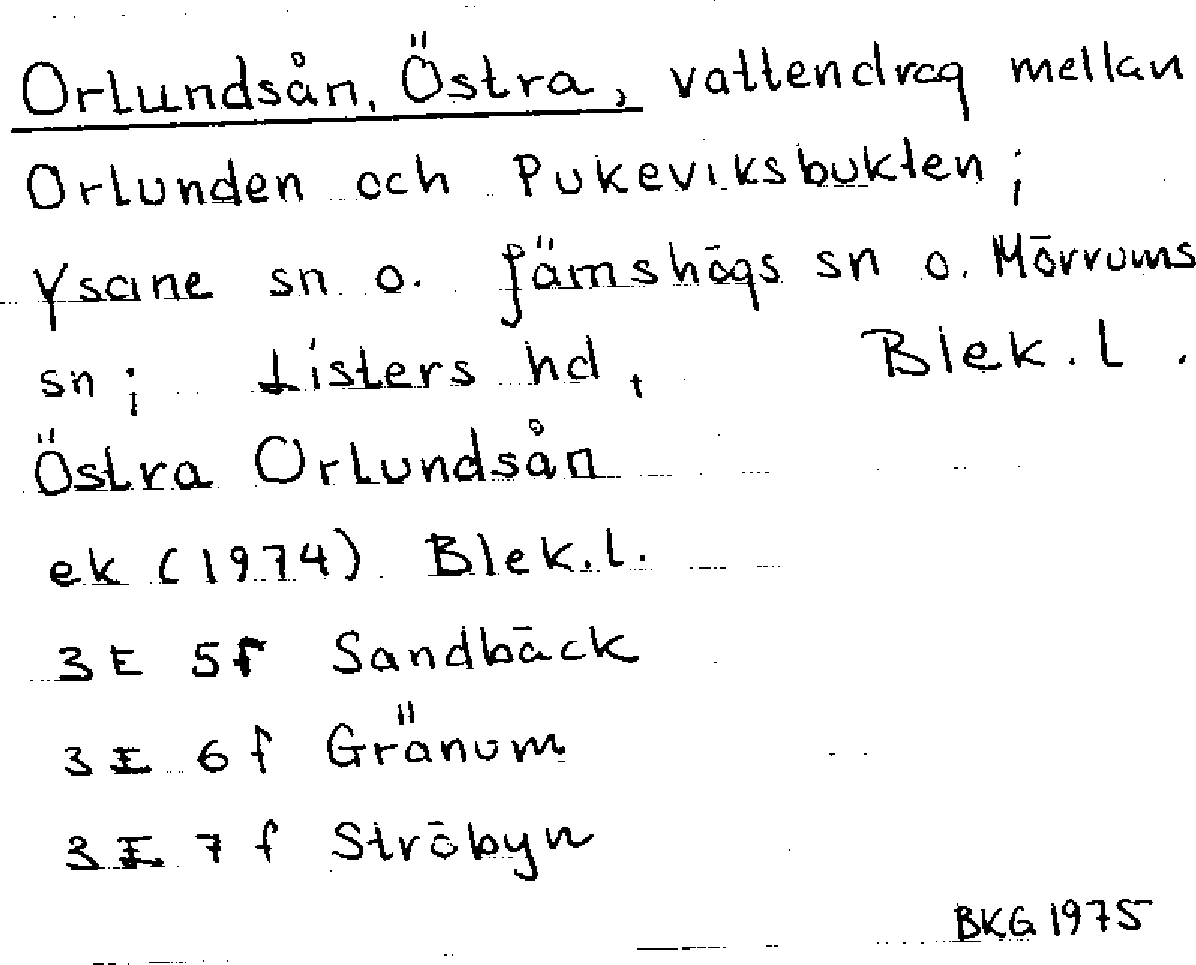 Orlundsån, Östra, vattendrag mellan
Orlunden och Pukeviksbukten;
Ysane sn o. Jämshögs sn o. Mörrums
sn; Listers hd, Blek.l.
Östra Orlundsån
ek (1974) Blek.l.
3E 5f Sandbäck
3E 6f Gränum
3E 7f Ströbyn
BKG 1975